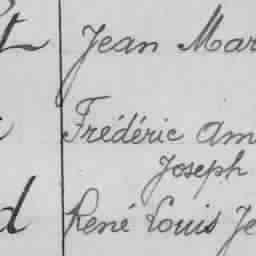 t Jean Mar
Frédéric Am
Joseph
d René Louis Je